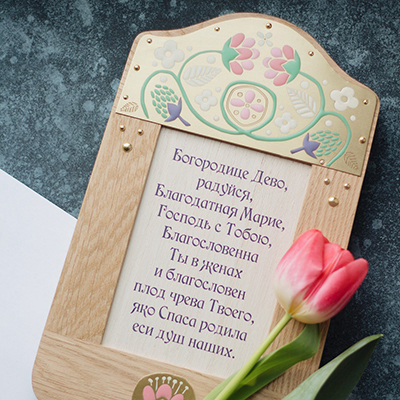 Богородице Дево,
радуйся,
Благодатная Марие,
Господь с Тобою,
Благословенна
Ты в женах
и благословен
плод чрева Твоего,
яко Спаса родила
еси душ наших.